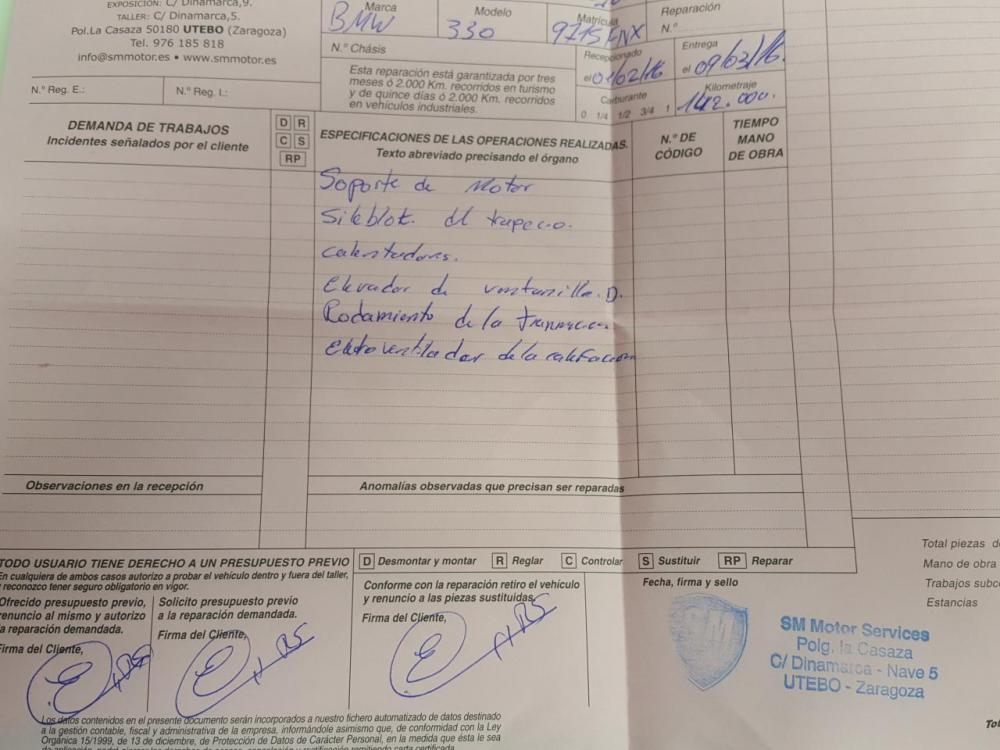 EXPOSICIÓN: C/ Dinamarca,9.
TALLER: C/ Dinamarca,5.
Pol.La Casaza 50180 UTEBO (Zaragoza)
Tel. 976 185 818
info@smmotor.es • www.smmotor.es
N.º Reg. E.:
N.º Reg. I.:
Marca
BMW
Modelo
330
Matrícula
9715FNX
Reparación
N.º
N.º Chásis
Recepcionado
el 01/02/16
Entrega
el 09/03/16.
Esta reparación está garantizada por tres
meses ó 2.000 Km. recorridos en turismo
y de quince días ó 2.000 Km. recorridos
en vehículos industriales.
Carburante
0 1/4 1/2 3/4 1
Kilometraje
142.000.
DEMANDA DE TRABAJOS
Incidentes señalados por el cliente
D R
C S
RP
ESPECIFICACIONES DE LAS OPERACIONES REALIZADAS.
Texto abreviado precisando el órgano
N.º DE
CÓDIGO
TIEMPO
MANO
DE OBRA
Soporte de Motor
Sileblot. del trapecio.
calentadores.
Elevador de ventanilla. D.
Rodamiento de la
Eletroventilador de la calefacion
Observaciones en la recepción
Anomalías observadas que precisan ser reparadas
TODO USUARIO TIENE DERECHO A UN PRESUPUESTO PREVIO
En cualquiera de ambos casos autorizo a probar el vehículo dentro y fuera del taller,
y reconozco tener seguro obligatorio en vigor.
D Desmontar y montar R Reglar C Controlar S Sustituir RP Reparar
Ofrecido presupuesto previo,
renuncio al mismo y autorizo
la reparación demandada.
Firma del Cliente,
Solicito presupuesto previo
a la reparación demandada.
Firma del Cliente,
Conforme con la reparación retiro el vehículo
y renuncio a las piezas sustituidas.
Firma del Cliente,
Fecha, firma y sello
SM
SM Motor Services
Polg. la Casaza
C/ Dinamarca - Nave 5
UTEBO - Zaragoza
Total piezas
Mano de obra
Trabajos
Estancias
Los datos contenidos en el presente documento serán incorporados a nuestro fichero automatizado de datos destinado
a la gestión contable, fiscal y administrativa de la empresa, informándole asimismo que, de conformidad con la Ley
Orgánica 15/1999, de 13 de diciembre, de Protección de Datos de Carácter Personal, en la medida que ésta le sea